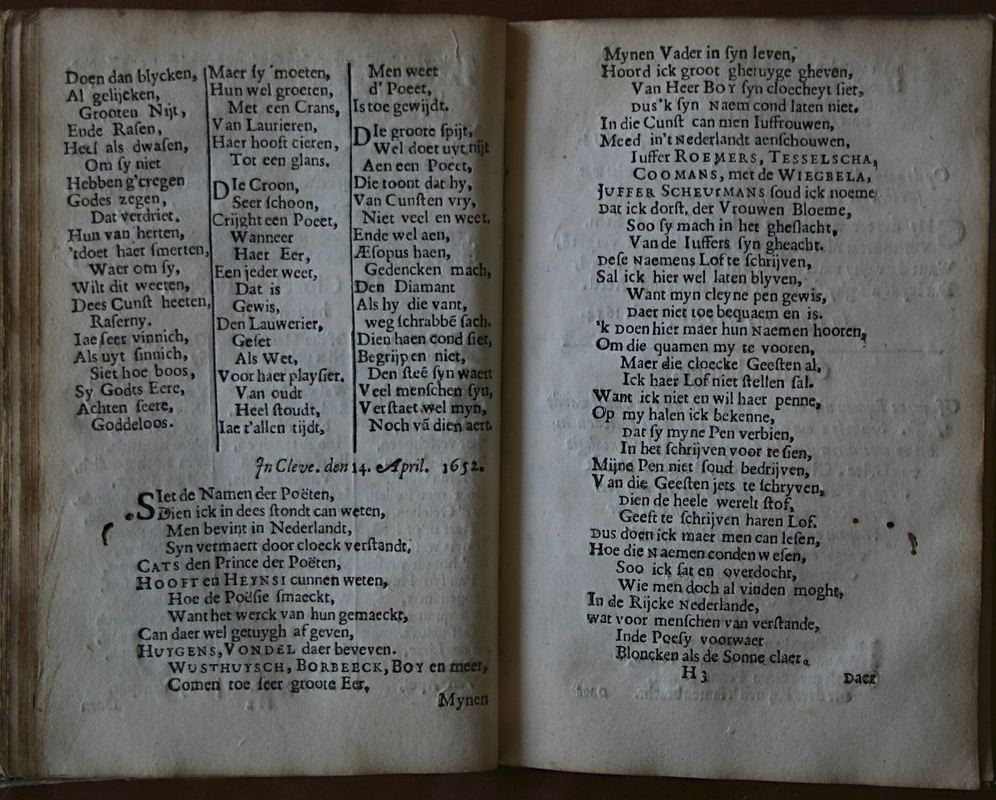 Doen dan blycken,
Al gelijcken,
Grooten Nijt,
Ende Rasen,
Heel als dwasen,
Om sy niet
Hebben g'cregen
Godes zegen,
Dat verdriet.
Hun van herten,
'tdoet haer smerten,
Waer om sy,
Wilt dit weeten,
Dees Cunst heeten,
Raserny.
Iae seer vinnich,
Als uyt sinnich,
Siet hoe boos,
Sy Godts Eere,
Achten seere,
Goddeloos.
Maer sy moeten,
Hun wel groeten,
Met een Crans,
Van Laurieren,
Haer hooft cieren,
Tot een glans,
DIe Croon,
Seer schoon,
Crijght een Poeet,
Wanneer
Haer Eer,
Een jeder weet,
Dat is
Gewis,
Den Lauwerier,
Geset
Als Wet,
Voor haer playsier.
Van oudt
Heel stoudt,
Iae t'allen tijdt,
Men weet
d' Poeet,
Is toe gewijdt.
DIe groote spijt,
Wel doet uyt nijt
Aen een Poeet,
Die toont dat hy,
Van Cunsten vry,
Niet veel en weet.
Ende wel aen,
Æsopus haen,
Gedencken mach,
Den Diamant
Als hy die vant,
weg schrabbē sach.
Dien haen cond siet,
Begrijpen niet,
Den steē syn waert
Veel menschen syn,
Verstaet wel myn,
Noch vā dien aert.
In Cleve. den 14. April. 1652.
SIet de Namen der Poëten,
Dien ick in dees stondt can weten,
Men bevint in Nederlandt,
Syn vermaert door cloeck verstandt,
CATS den Prince der Poëten,
HOOFT en HEYNSI cunnen weten,
Hoe de Poësie smaeckt,
Want het werck van hun gemaeckt,
Can daer wel getuygh af geven,
HUYGENS, VONDEL daer beveven.
WUSTHUYSCH, BORBEECK, BOY en meer,
Comen toe seer groote Eer,
Mynen
Mynen Vader in syn leven,
Hoord ick groot ghetuyge gheven,
Van Heer BOY syn cloecheyt siet,
Dus'k syn Naem cond laten niet.
In die Cunst can men Iuffrouwen,
Meed in't Nederlandt aenschouwen,
Iuffer ROEMERS, TESSELSCHA,
COOMANS, met de WIEGBELA,
JUFFER SCHEURMANS soud ick noeme
Dat ick dorst, der Vrouwen Bloeme,
Soo sy mach in het gheslacht,
Van de Iuffers syn gheacht.
Dese Naemens Lof te schrijven,
Sal ick hier wel laten blyven,
Want myn cleyne pen gewis,
Daer niet toe bequaem en is.
'k Doen hier maer hun Naemen hooren,
Om die quamen my te vooren,
Maer die cloecke Geesten al,
Ick haer Lof niet stellen sal.
Want ick niet en wil haer penne,
Op myn halen ick bekenne,
Dat sy myne Pen verbien,
In het schrijven voor te sien,
Mijne Pen niet soud bedrijven,
Van die Geesten jets te schryven,
Dien de heele werelt stof,
Geeft te schrijven haren Lof.
Dus doen ick maer men can lesen,
Hoe die Naemen conden wesen,
Soo ick sat en overdocht,
Wie men doch al vinden moght,
In de Rijcke Nederlande,
Wat voor menschen van verstande,
Inde Poesy voorwaer
Bloncken als de Sonne claer.
H 3
Daer